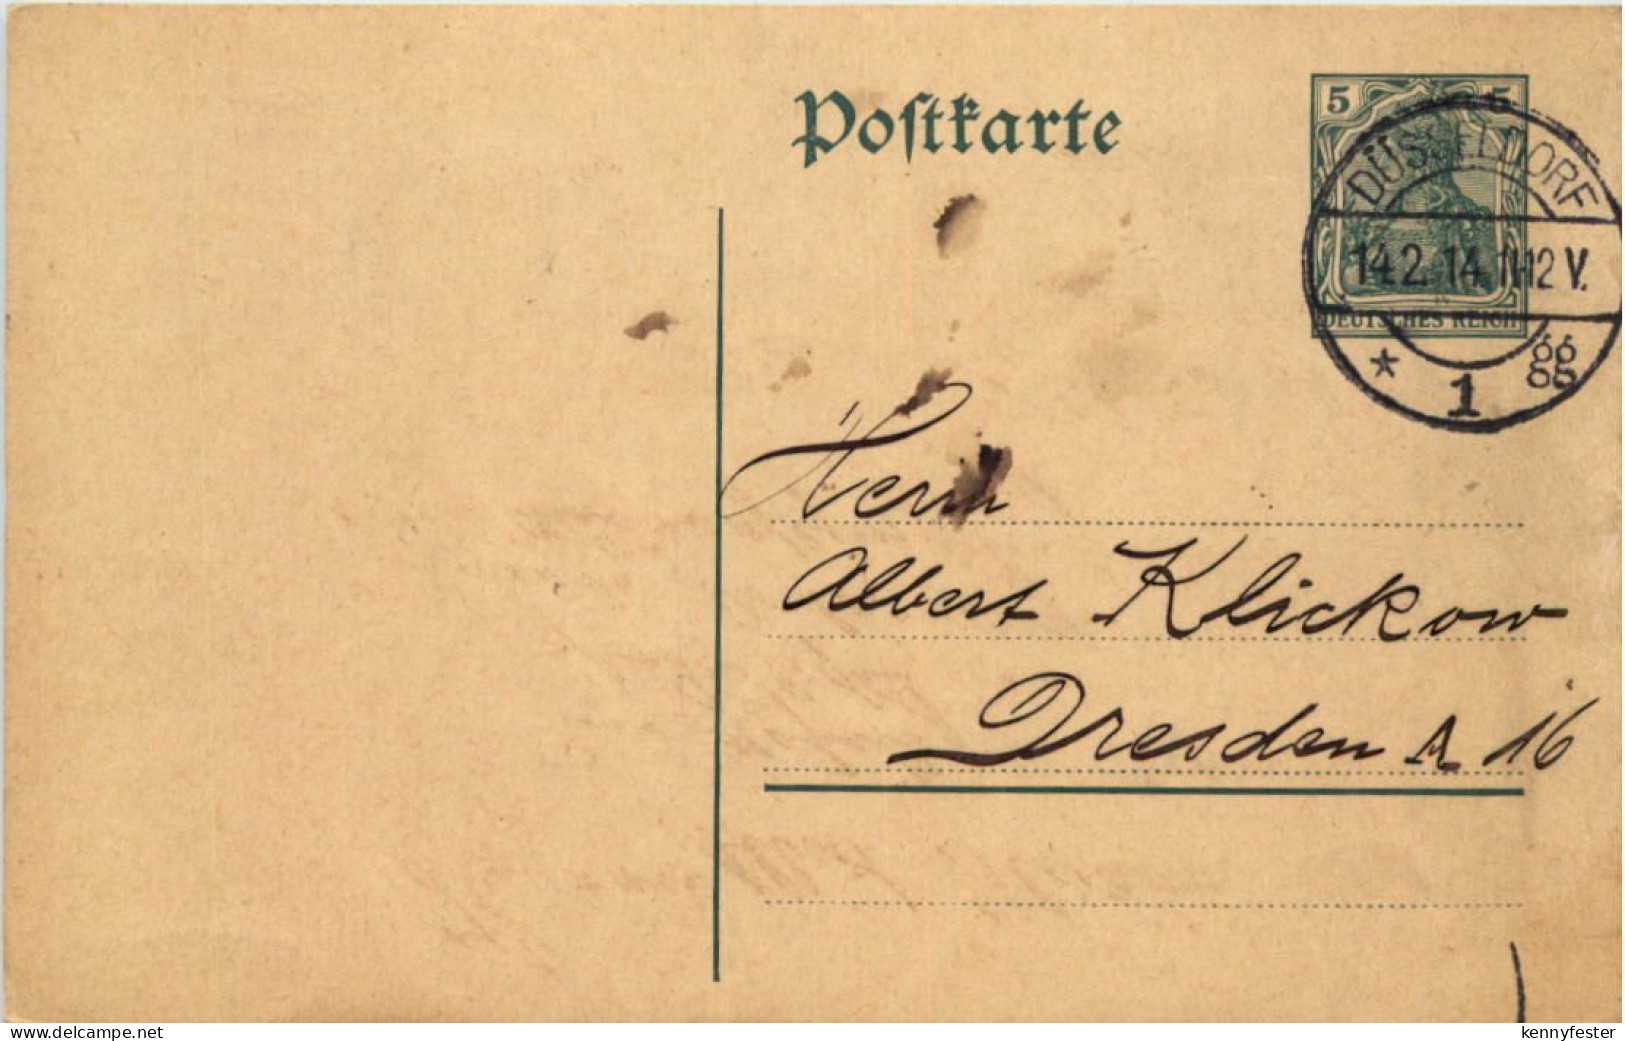 Postkarte
5 5
DÜSSELDORF
14.2.14. 11-12 V.
DEUTSCHES REICH
* 1 gg
Herrn
Albert Klickow
Dresden A 16
www.delcampe.net
kennyfester